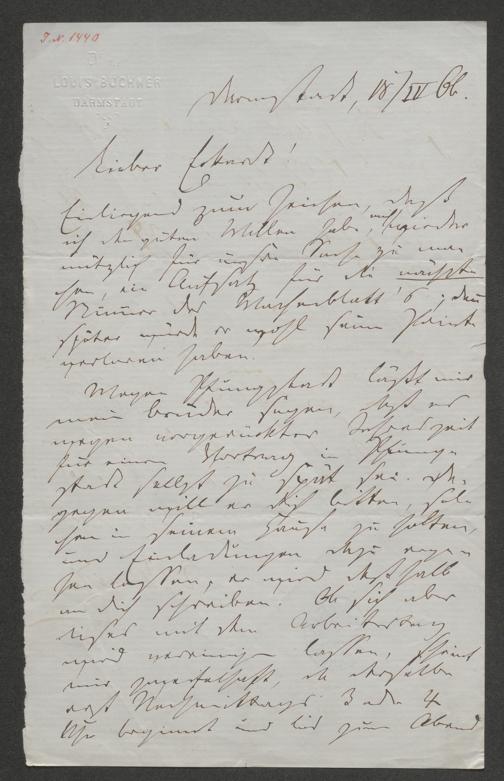 J.N. 1440
LOUIS BÜCHNER
DARMSTADT
Darmstadt, 18/IV 66.
Lieber Eckardt!
Einliegend zum Zeichen, daß
ich den guten Willen habe, mich wieder
nützlich für unsre Sache zu ma-
chen, ein Aufsatz für die nächste
Nummer des Wochenblatt's; denn
später würde er wohl seine Pointe
verloren haben.
Wegen Pfungstadt läßt mir
mein Bruder sagen, daß es
wegen vorgerückter Jahreszeit
für einen Vortrag in Pfung-
stadt selbst zu spät sei. Da-
gegen will er Dich bitten, sol-
chen in seinem Hause zu halten,
und Einladungen dazu erge-
hen lassen; er wird deßhalb
an Dich schreiben. Ob sich aber
dieses mit dem Arbeitertag
wird vereinigen lassen, scheint
mir zweifelhaft, da derselbe
erst Nachmittags 3 oder 4
Uhr beginnt und bis zum Abend